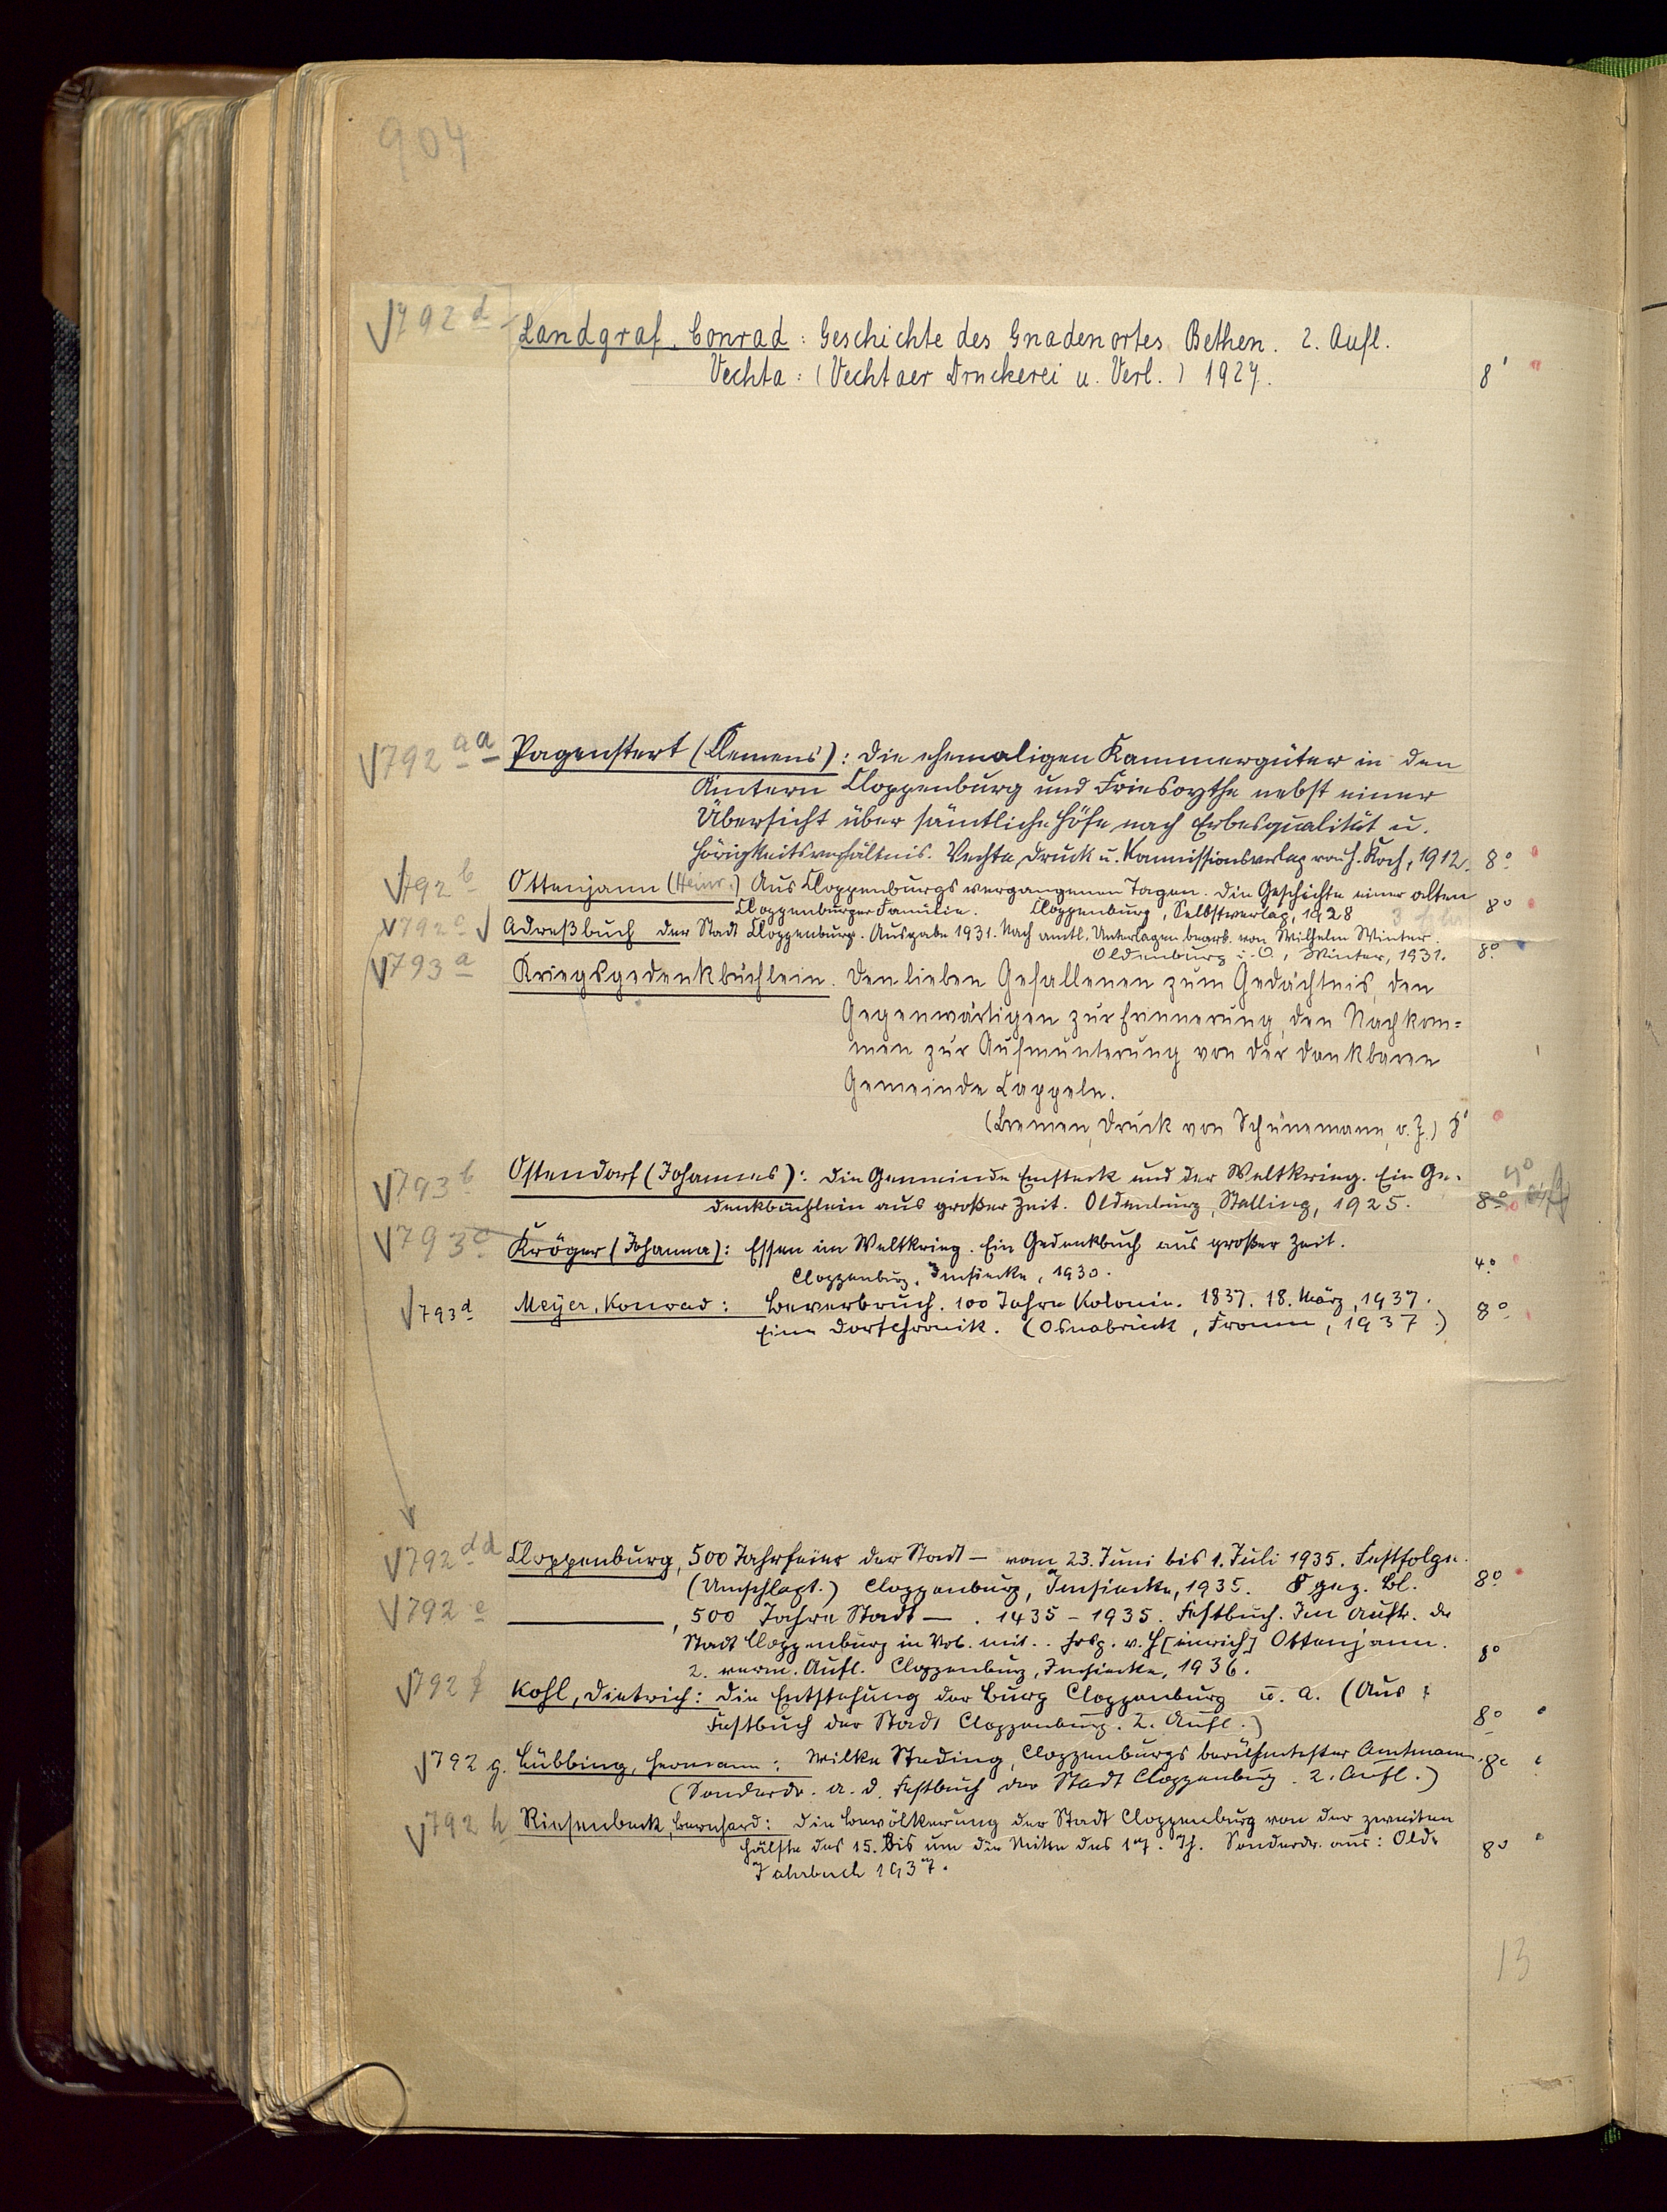 904
792 d Landgraf, Conrad: Geschichte des Gnadenortes Bethen. 2. Aufl.
Vechta: (Vechtaer Druckerei u. Verl.) 1927. 8°
792 aa Pagenstert (Clemens): Die ehemaligen Kammergüter in den
Ämtern Cloppenburg und Friesoythe nebst einer
Übersicht über sämtliche Höfe nach Erbesqualität u.
Hörigkeitsverhältnis. Vechta, Druck u. Kommissionsverlag von H. Koch, 1912. 8°
792 b Ottenjann (Heinr.) Aus Cloppenburgs vergangenen Tagen. Die Geschichte einer alten
Cloppenburger Familie. Cloppenburg, Selbstverlag, 1928 8°
792 c Adreßbuch der Stadt Cloppenburg. Ausgabe 1931. Nach amtl. Unterlagen bearb. von Wilhelm Winter.
Oldenburg i. O., Winter, 1931. 8°
793 a Kriegsgedenkbüchlein. Den lieben Gefallenen zum Gedächtnis, den
Gegenwärtigen zur Erinnerung, den Nachkom=
men zur Aufmunterung von der dankbaren
Gemeinde Cappeln.
(Bremen, Druck von Schünemann, o. J.) 8°
793 b Ostendorf (Johannes): Die Gemeinde Emsteck und der Weltkrieg. Ein Ge-
denkbüchlein aus großer Zeit. Oldenburg, Stalling, 1925. 8° 4°
793 c Kröger (Johanna): Essen im Weltkrieg. Ein Gedenkbuch aus großer Zeit.
Cloppenburg, Imsiecke, 1930. 4°
793 d Meyer, Konrad: Beverbruch. 100 Jahre Kolonie. 1837. 18. März, 1937.
Eine Dorfchronik. (Osnabrück, Fromm, 1937.) 8°
792 dd Cloppenburg, 500 Jahrfeier der Stadt — vom 23. Juni bis 1. Juli 1935. Festfolge.
(Umschlagt.) Cloppenburg, Imsiecke, 1935. 8 gez. Bl. 8°
792 e ———, 500 Jahre Stadt — . 1435 - 1935. Festbuch. Im Auftr. der
Stadt Cloppenburg in Vbb. mit .. hrsg. v. H[einrich] Ottenjann.
2. verm. Aufl. Cloppenburg, Imsiecke, 1936. 8°
792 f Kohl, Dietrich: Die Entstehung der Burg Cloppenburg u. a. (Aus:
Festbuch der Stadt Cloppenburg. 2. Aufl.) 8°
792 g. Lübbing, Hermann: Wilke Steding, Cloppenburgs berühmtester Amtmann. 8°
(Sonderdr. a. d. Festbuch der Stadt Cloppenburg. 2. Aufl.)
792 h Riesenbeck, Bernhard: Die Bevölkerung der Stadt Cloppenburg von der zweiten
Hälfte des 15. bis um die Mitte des 17. Jh. Sonderdr. aus: Old. 8°
Jahrbuch 1937.
13